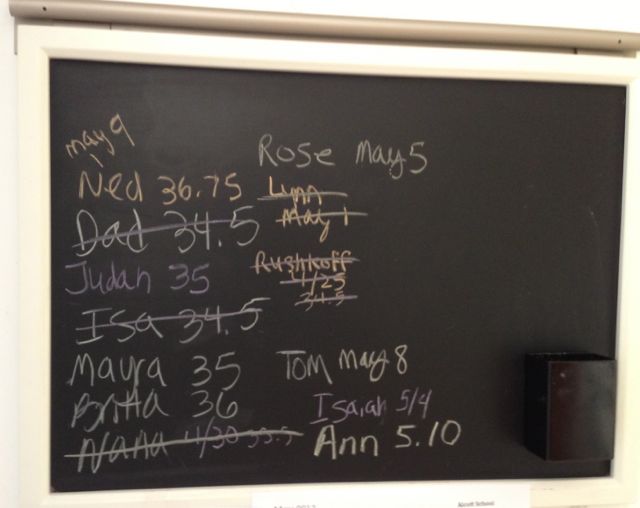 may 9
Ned 36.75
Dad 34.5
Judah 35
Isa 34.5
Mayra 35
Britta 36
Nana 4/30 35.5
Rose May 5
Lynn
May 1
Rushkoff
4/25
34.5
Tom May 8
Isaiah 5/4
Ann 5.10